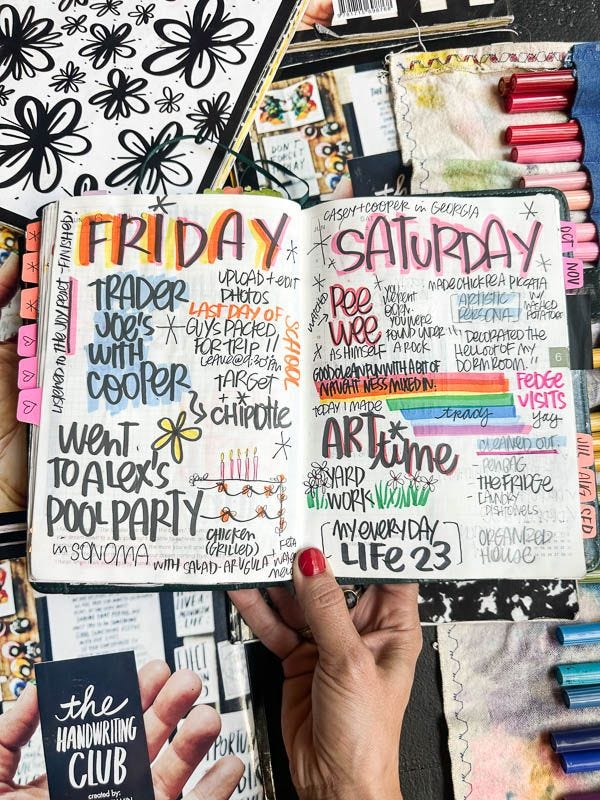 DON'T
FRIDAY
TRADER
JOE'S
WITH
COOPER
LISTENED TO THE IVY PEARL - FINISHED!
UPLOAD + EDIT
PHOTOS
LAST DAY OF SCHOOL
GUYS PACKED
FOR TRIP!!
LEAVE @ 4:30AM
TARGET
+
CHIPOTLE
WENT
TO ALEX'S
POOL PARTY
in SONOMA
CHICKEN
(GRILLED)
WITH SALAD - ARUGULA +
FETA
CASEY + COOPER in GEORGIA
JUN
SAT
SATURDAY
WATCHED
PEE
WEE
AS HIMSELF
YOU WERENT
BORN.
YOU WERE
FOUND UNDER
A ROCK.
MADE CHICKEN PICCATA
W/
MASHED
POTATOES
ARTISTIC
PERSONA
"DECORATED THE
HELL OUT OF MY
DORM ROOM."
6
GOOD CLEAN FUN WITH A BIT OF
NAUGHTINESS MIXED IN.
TODAY I MADE
tracy
FEDGE
VISITS
Yay
ART
time
YARD
WORK
CLEANED OUT
- PEN BAG
- THE FRIDGE
- LAUNDRY
DISH TOWELS
ORGANIZED
HOUSE
MY EVERYDAY
LIFE 23
OCT
NOV
JUL
AUG
SEP
the
HANDWRITING
CLUB
created by: